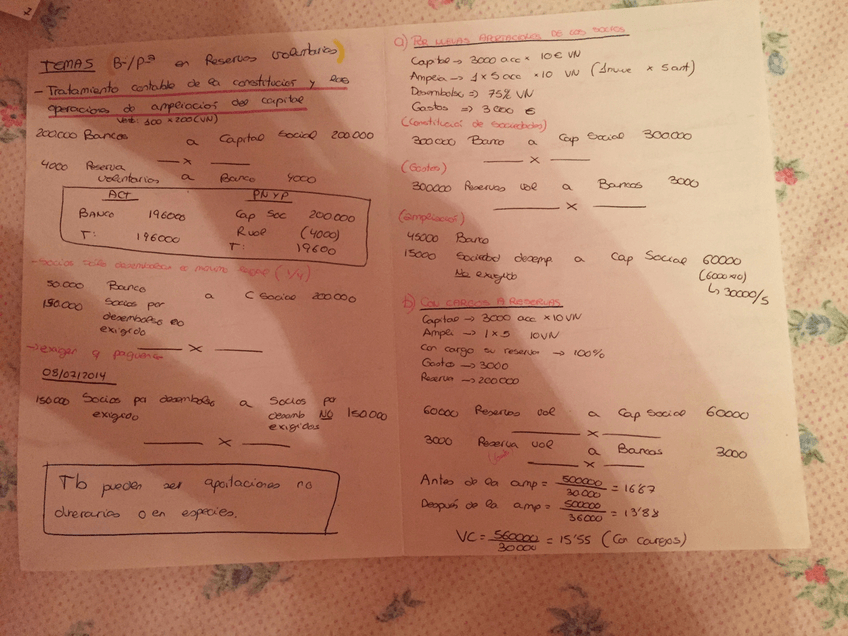 2
TEMAS B-/Pª en Reservas voluntarias
- Tratamiento contable de la constitución y las
operaciones de ampliación del capital
100 x 200 (VN)
200.000 Bancos a Capital Social 200.000
— x —
4000 Reserva
voluntarias a Banco 4000
ACT PN y P
BANCO 196000 Cap Soc 200.000
R vol (4000)
T: 196000 T: 19600
- Socios sólo desembolsa el mínimo legal (1/4)
50.000 Banco
a C Social 200.000
150.000 Socios por
desembolso no
exigido
— x —
→ exigen q paguemos
08/02/2014
150000 Socios pa desembolso a Socios pa
exigido desemb NO 150.000
exigidos
— x —
Tb pueden ser aportaciones no
dinerarias o en especies.
a) POR NUEVAS APORTACIONES DE LOS SOCIOS
Capital → 3000 acc x 10€ VN
Amplia → 1 x 5 acc x 10 VN (1 nuev x 5 ant)
Desembolso => 75% VN
Gastos => 3000 €
(Constitució de Sociedades)
300.000 Banco a Cap Social 300.000
— x —
(Gastos)
300000 Reservas vol a Bancos 3000
— x —
(ampliació)
45000 Banco
15000 Sociedad desemp a Cap Social 60000
No exigido (6000x10)
↳ 30000/5
b) CON CARGOS A RESERVAS
Capital → 3000 acc x 10 VN
Ampli → 1 x 5 10 VN
Con cargo su reserva → 100%
Gastos → 3000
Reserva → 200.000
60000 Reservas vol a Cap Social 60000
— x —
3000 Reserva vol
a Bancos 3000
— x —
Antes de la amp = 500000/30.000 = 16'67
Después de la amp = 500000/36000 = 13'88
VC = 560000/30000 = 15'55 (Con cargos)